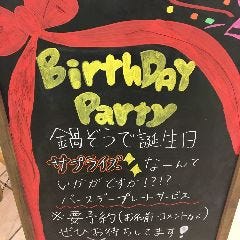 BirthDAY
Party
鍋ぞうで誕生日
サプライズ なーんて
いかがですか!?!?
バースデープレートサービス
※要予約(お名前・コメントなど)
ぜひお待ちしてます!